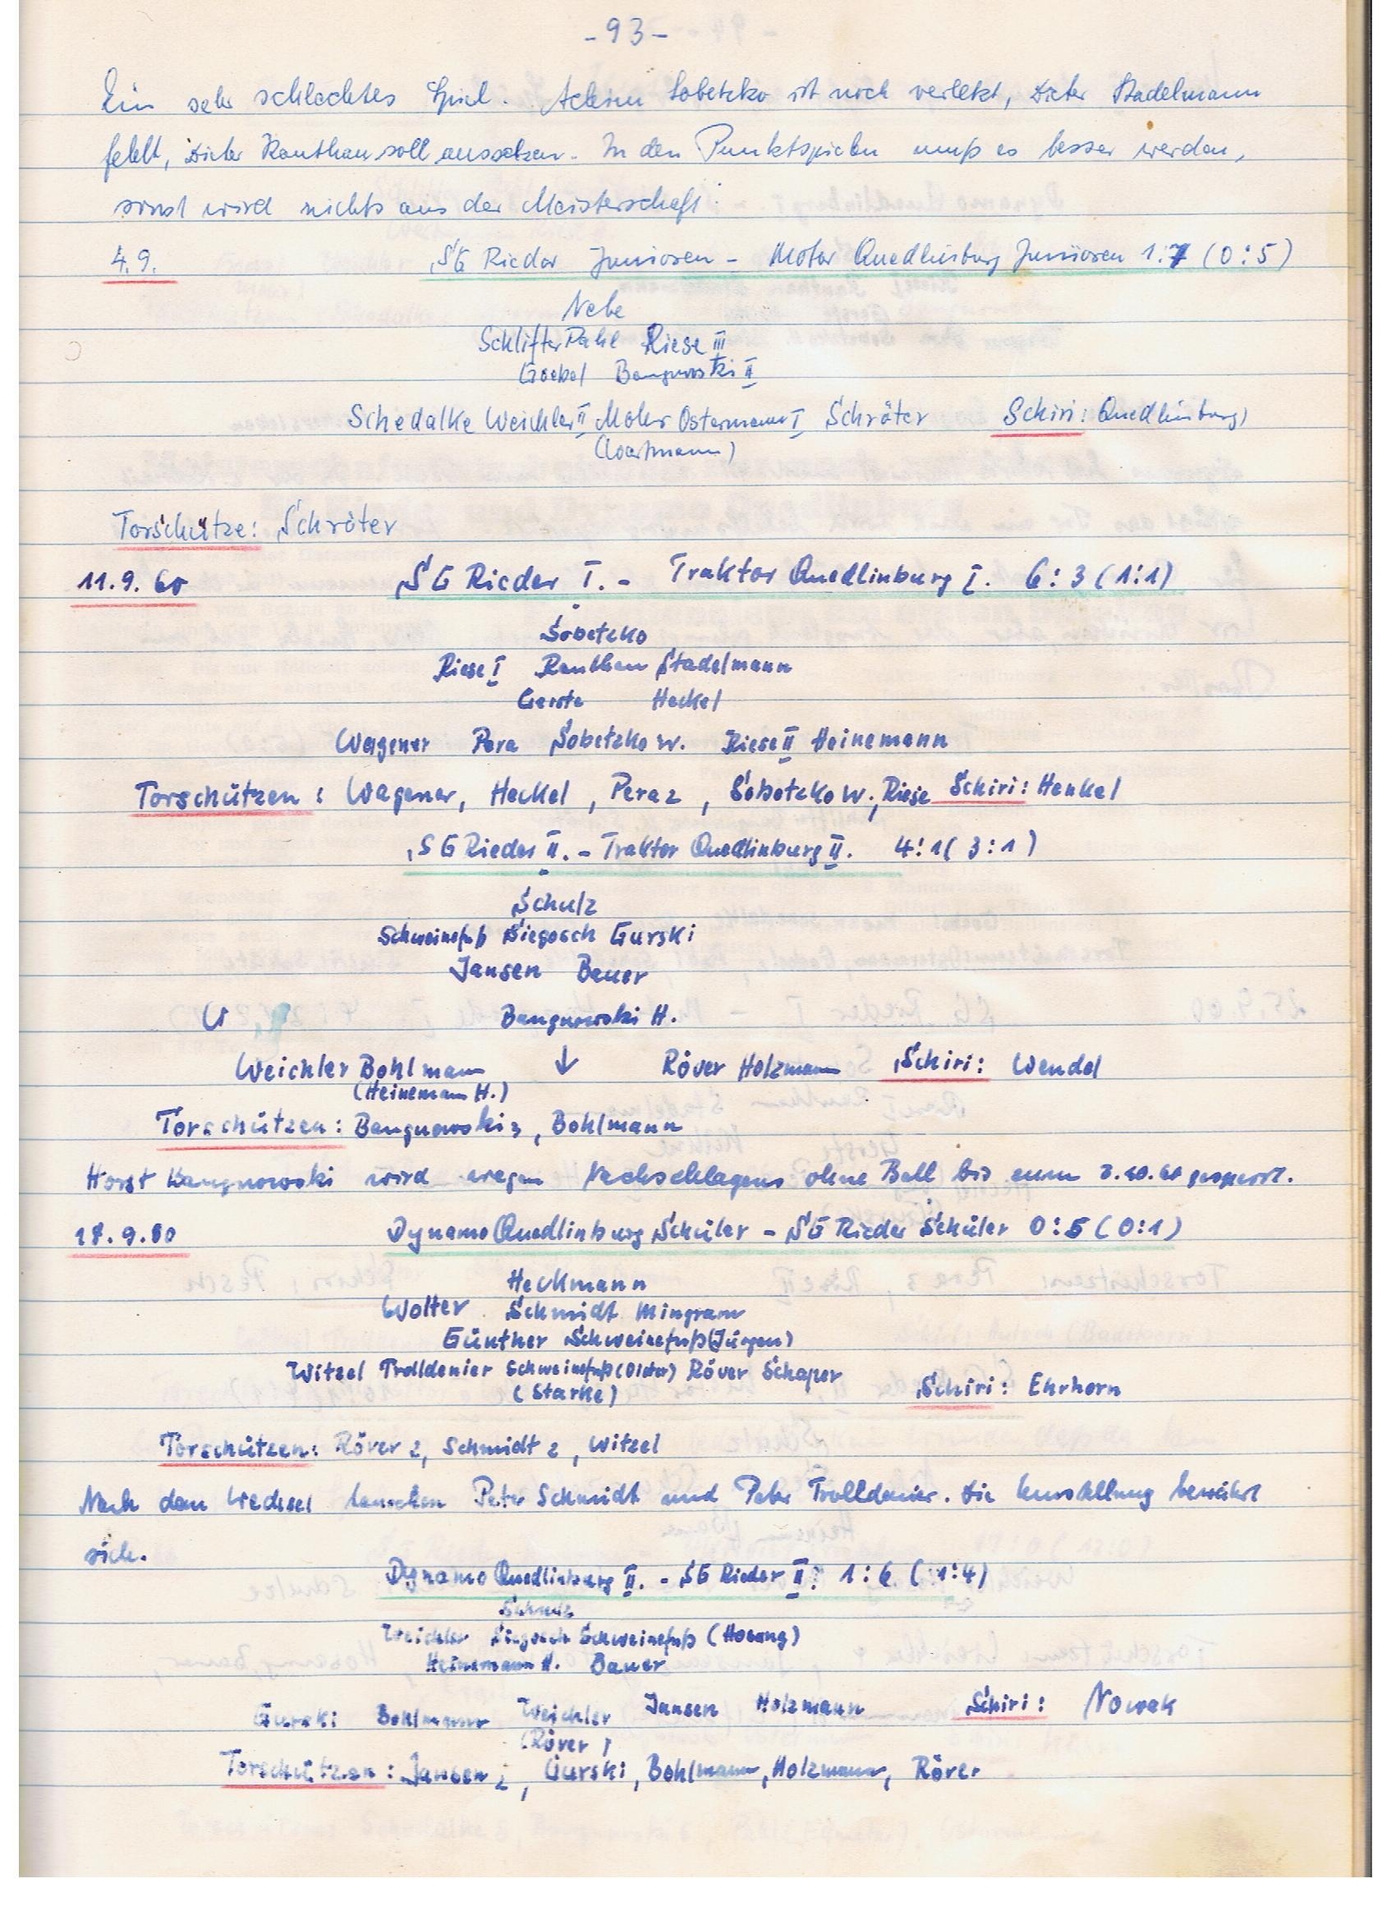 -93-
Ein sehr schlechtes Spiel. Achim Sobetzko ist noch verletzt, Dieter Stadelmann
fehlt, Dieter Rauthan soll aussetzen. In den Punktspielen muß es besser werden,
sonst wird nichts aus der Meisterschaft.
4.9. SG Rieder Junioren - Motor Quedlinburg Junioren 1:7 (0:5)
Nebe
Schlifter Pahl Riese III
Goebel Bangnowski II
Schedalke Weichler II Mohr Ostermann I Schröter Schiri: Quedlinburg)
Torschütze: Schröter
11.9.60 SG Rieder I. - Traktor Quedlinburg I. 6:3 (1:1)
Sobetzko
Riese I Rauthan Stadelmann
Gerste Heckel
Wagener Pera Sobetzko W. Riese II Heinemann
Torschützen: Wagener, Heckel, Pera 2, Sobetzko W., Riese Schiri: Henkel
SG Rieder II. - Traktor Quedlinburg II. 4:1 (3:1)
Schulz
Schweinefuß Siegosch Gurski
Jansen Bauer
Bangnowski H.
Weichler Bohlmann ↓ Röver Holzmann Schiri: Wendel
(Heinemann H.)
Torschützen: Bangnowski 3, Bohlmann
Horst Bangnowski wird wegen Nachschlagens ohne Ball bis zum gesperrt.
18.9.60 Dynamo Quedlinburg Schüler - SG Rieder Schüler 0:5 (0:1)
Heckmann
Wolter Schmidt Mingram
Günther Schweinefuß (Jürgen)
Witzel Trolldenier Schweinefuß (Dieter) Röver Schaper
(Starke) Schiri: Ehrhorn
Torschützen: Röver 2, Schmidt 2, Witzel
Nach dem Wechsel tauschen Peter Schmidt und Peter Trolldenier. Die Umstellung bewährt
sich.
Dynamo Quedlinburg II. - SG Rieder II. 1:6 (1:4)
Schulz
Weichler Siegosch Schweinefuß (Hosung)
Heinemann H. Bauer
Gurski Bohlmann Weichler Jansen Holzmann Schiri: Nowak
(Röver)
Torschützen: Jansen 2, Gurski, Bohlmann, Holzmann, Röver